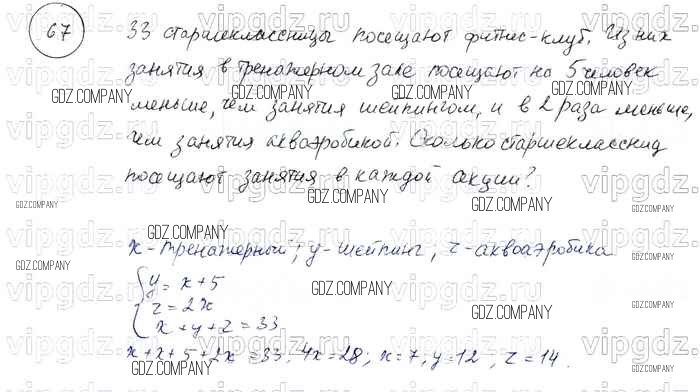 67
33 старшеклассницы посещают фитнес-клуб. Из них
занятия в тренажерном зале посещают на 5 человек
меньше, чем занятия шейпингом, и в 2 раза меньше,
чем занятия аквааэробикой. Сколько старшеклассниц
посещают занятия в каждой акции?
x - тренажерный; y - шейпинг; z - аквоаэробика
y = x + 5
z = 2x
x + y + z = 33
x + x + 5 + 2x = 33; 4x = 28; x = 7, y = 12, z = 14.
vipgdz.ru
GDZ.COMPANY